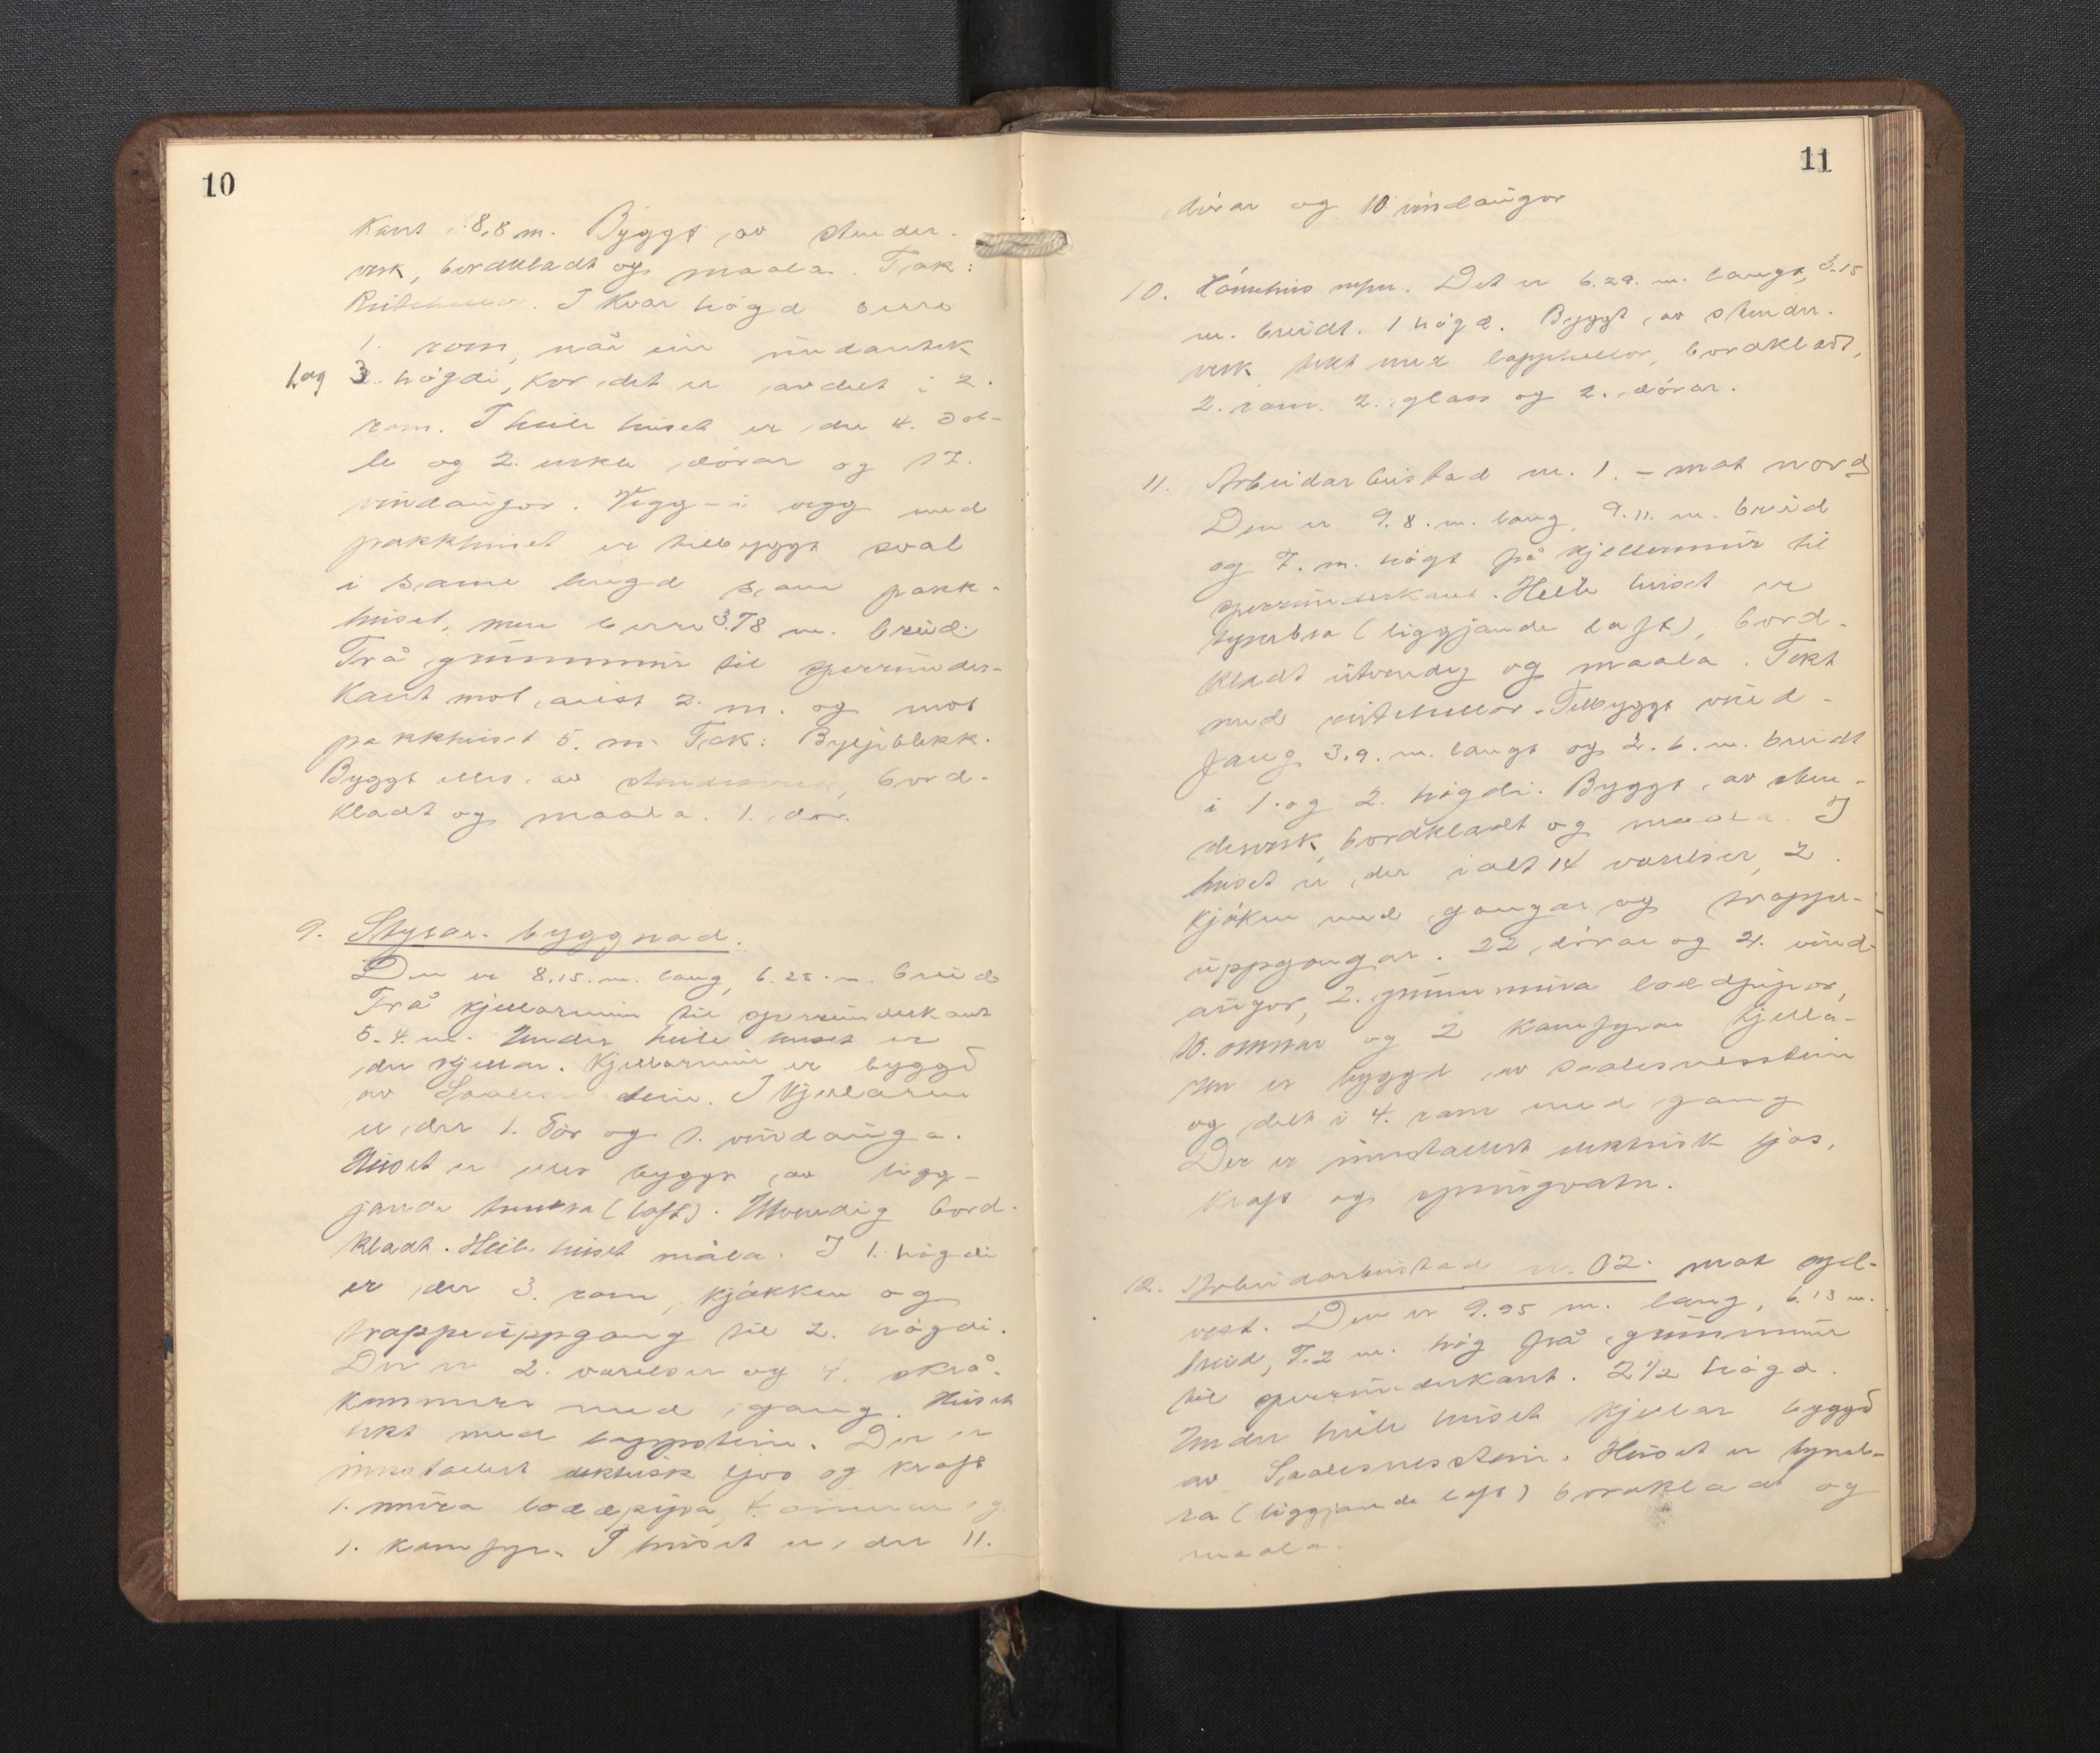 10
kant 8,8 m. Byggt av stender-
verk, bordkladt og maala. Tak:
Rutehellor. I kvar högd berre
1. rom, når ein undantek
1. og 3. högdi, kor det er avdelt i 2.
rom. I heile huset er der 4. dob-
le og 2. enkle dörar og 17.
vindaugor. Vegg-i-vegg med
pakkhuset er tilbyggt sval
i same lengd som pakk-
huset, men berre 3.78 m. breid.
Frå grunnmur til sperrunder-
kant mot aust 2. m. og mot
pakkhuset 5. m. Tak: Bylgjeblekk.
Byggt elles av stenderverk, bord-
kladt og maala. 1. dör.
9. Styrar-byggnad.
Den er 8.15. m. lang, 6.25. m. breid
Frå kjellarmur til sperrunderkant
5.4. m. Under heile huset er
der kjellar. Kjellarmur er byggd
av Saalesnesstein. I kjellaren
er der 1. dör og 1. vindauga.
Huset er elles byggt av ligg-
jande tømra (laft). Utvendig bord-
kladt. Heile huset måla. I 1. högdi
er der 3. rom, kjökken og
trappeuppgang til 2. högdi.
Der er 2. varelser og 4. skrå-
kammers med gang. Huset
tekt med lappstein. Der er
innstallert elektrisk ljos og kraft
1. mura loddpipa, 4. omnar og
1. kamfyr. I huset er der 11.
11
dörar og 10 vindaugor
10. Det er 6.29. m. langt, 3.15
m. breidt. 1 högd. Byggt av stender-
verk, tekt med lapphellor, bordkladt,
2. rom, 2. glass og 2. dörar.
11. Arbeidarbustad nr. 1. - mot nord
Den er 9.8. m. lang, 9.11. m. breid
og 7. m. högt frå kjellarmur til
sperrunderkant. Heile huset er
tymbra (liggjande laft), bord-
kladt utvendig og maala. Tekt
med rutehellor. Tilbyggt vind-
fang 3.9. m. langt og 2.6. m. breidt
i 1. og 2. högdi. Byggt av sten-
derverk, bordkladt og maala. I
huset er der ialt 14 varelser, 2.
kjöken med gangar og trappe-
uppgangar. 22 dörar og 21. vind-
augor, 2. grunnmura loddpipor,
10. omnar og 2 kamfyrar Kjella-
ren er byggd av Saalesnesstein
og delt i 4. rom med gang
Der er innstallert elektrisk ljos,
kraft og springvatn.
12. Arbeidarbustad nr. 02. mot syd-
vest. Den er 9.95 m. lang, 6.13 m.
breid, 7.2 m. hög frå grunnmur
til sperrunderkant. 2 1/2 högd.
Under heile huset kjellar byggd
av Saalesnesstein. Huset er tymb-
ra (liggjande laft) bordkladt og
maala.